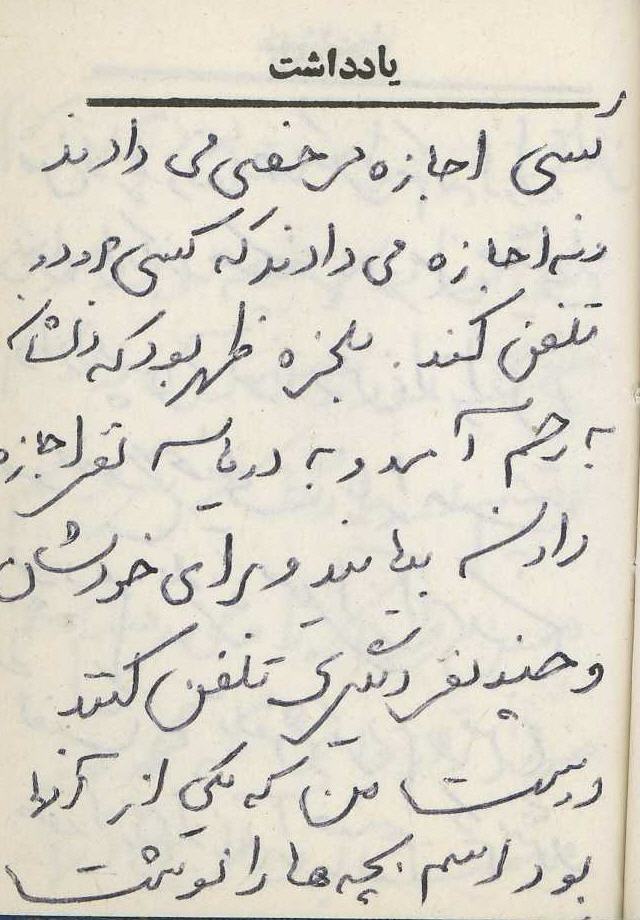 یادداشت
کسی اجازه مرخصی می دادند
و نه اجازه می دادند که کسی برود و
تلفن کند. بلخره ظهر بود که دلشان
به رحم آمد و به دو یا سه نفر اجازه
دادند بیایند و برای خودشان
و چند نفر دیگری تلفن کنند
و بهت من که یکی از آنها
بود اسم بچه ها را نوشت